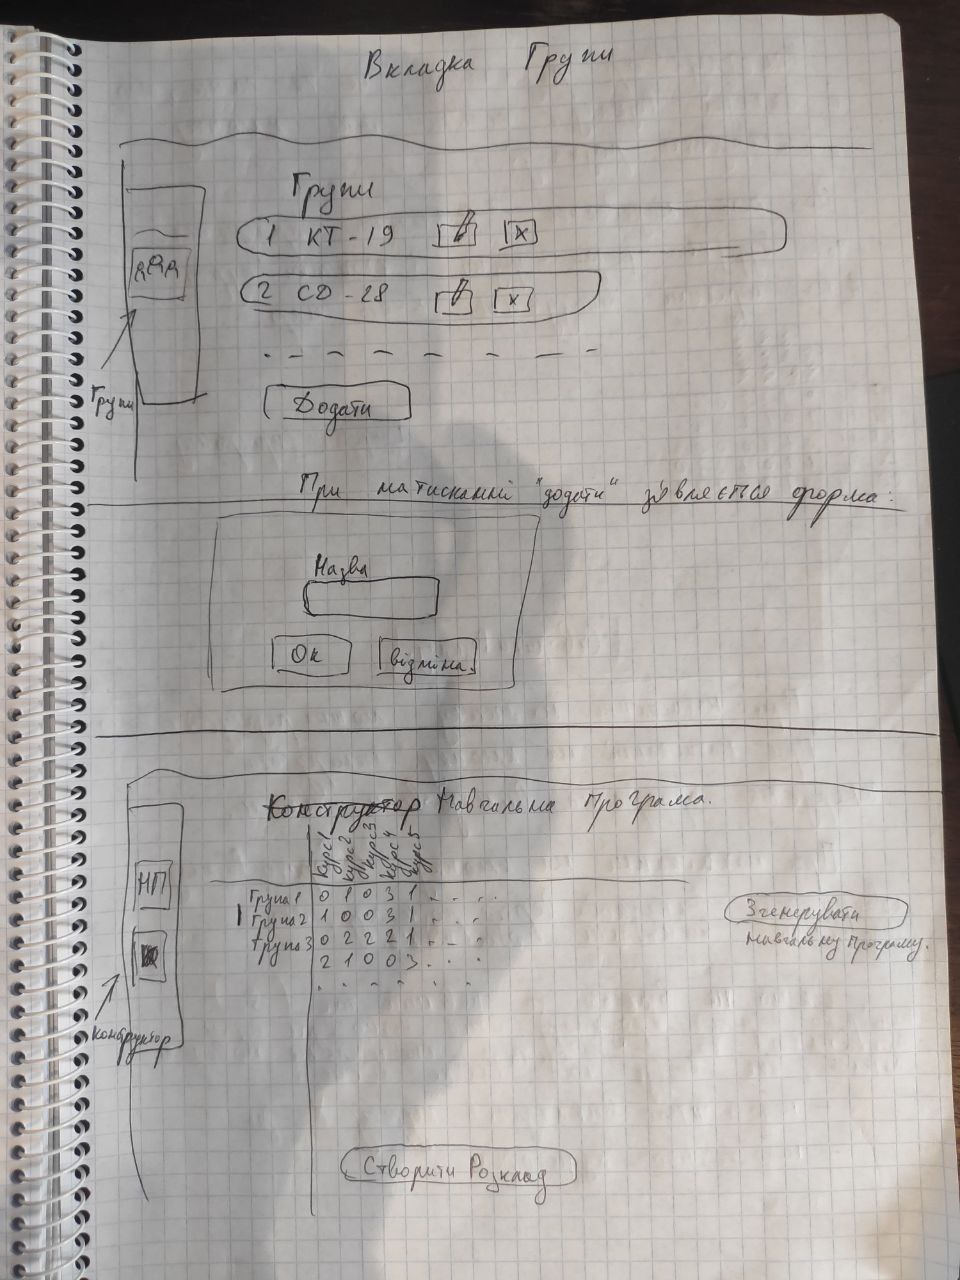 Вкладка Групи
Групи
1 КТ-19 x
2 СД-28 x
Групи
Додати
При натисканні "додати" зʼявляється форма:
Назва
Ок Відміна.
Конструктор Навчальна програма.
Курс1 Курс2 Курс3 Курс4 Курс5
НП
Група1 0 1 0 3 1 . . . .
Група2 1 0 0 3 1 . . .
Група3 0 2 2 2 1 . . .
2 1 0 0 3 . . .
. . . . . . .
Згенерувати
навчальну програму.
Конструктор
Створити Розклад